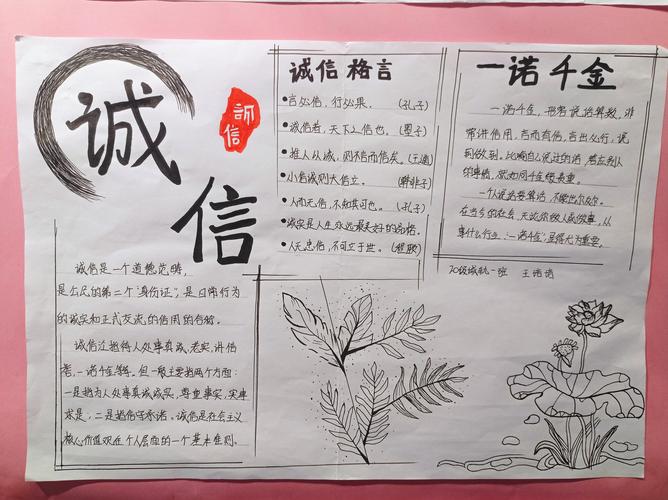 诚信
诚信
诚信是一个道德范畴,
是公民的第二个"身份证",是日常行为
的诚实和正式交流的信用的合称。
诚信泛指待人处事真诚、老实、讲信
誉,一诺千金等。但一般主要指两个方面:
一是指为人处事真诚诚实,尊重事实,实事
求是;二是指信守承诺。诚信是社会主义
核心价值观在个人层面的一个基本准则。
诚信格言
言必信,行必果。(孔子)
诚信者,天下之信也。(墨子)
推人以诚,则不言而信矣。(王通)
小信诚则大信立。(韩非子)
人而无信,不知其可也。(孔子)
诚实是人生永远最美好的品格。
人无忠信,不可立于世。(程颐)
一诺千金
一诺千金,形容说话算数,非
常讲信用,言而有信,言出必行,说
到做到。比喻自己说过的话,答应别人
的事情,就如同千金般贵重。
一个人说话要算话,不能出尔反尔。
在当今的社会,无论你做人或做事,从
事什么行业,"一诺千金"显得尤为重要。
20级城轨一班